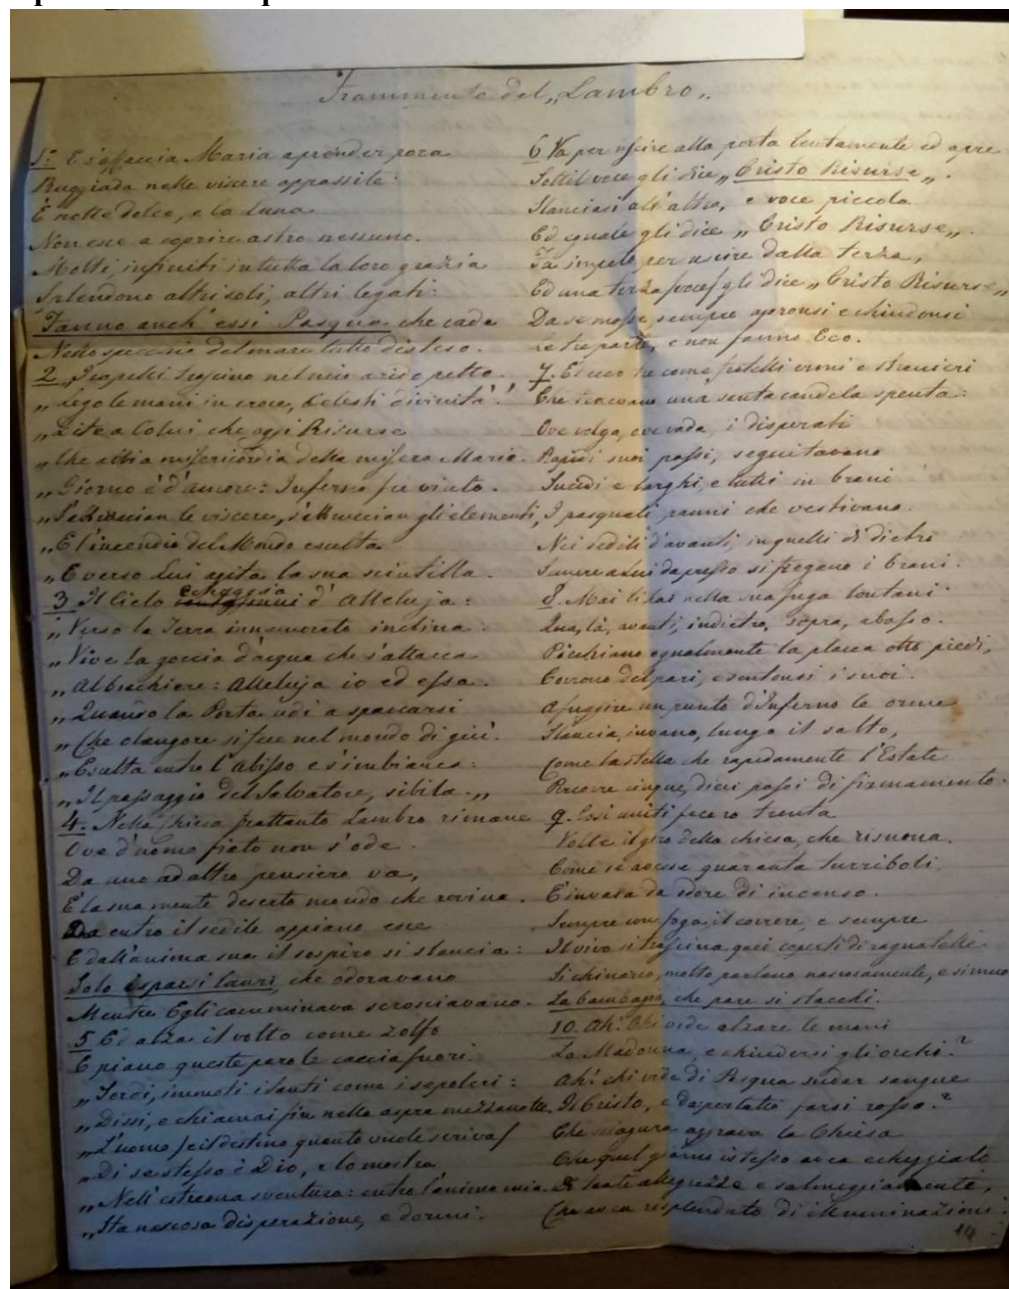 Frammento del „Lambro„
1.° E s'affaccia Maria a prender poca
Ruggiada nelle viscere appassite:
È notte dolce, e la luna
Non esce a coprire astro nessuno.
Molti, infiniti in tutta la loro grazia
Splendono altri soli, altri legati:
Fanno anch'essi Pasqua che cade
Nello specchio del mare tutto disteso.
2 „I capelli trascino nel mio arido petto
„Lego le mani in croce, Celesti divinità!
„Dite a Colui che oggi Risurse
„Che abbia misericordia della misera Maria.
„Giorno è d'amore: Inferno fu vinto.
„S'abbruccian le viscere, s'abbruccian gli elementi,
„E l'incendio del Mondo esulta
„E verso Lui agita la sua scintilla.
3 Il Cielo echeggia d'Alleluja:
„Verso la Terra innamorato inclina:
„Vive la goccia d'acqua che s'attacca
„Al bicchiere: Alleluja io ed essa.
„Quando la Porta udì a spaccarsi
„Che clangore si fece nel mondo di giù!
„Esulta entro l'abisso e s'imbianca:
„Il passaggio del Salvatore, sibila.„
4. Nella Chiesa frattanto Lambro rimane
Ove d'uomo fiato non s'ode.
Da uno ad altro pensiero va,
E la sua mente deserto mondo che rovina.
Da entro il sedile appiano esce
E dall'anima sua il sospiro si slancia:
Solo sparsi lauri, che odoravano
Mentre Egli camminava scrosciavano.
5 Ed alza il volto come zolfo
E piano queste parole caccia fuori.
„Sordi, immoti i Santi come i sepolcri:
„Dissi, e chiamai fin nella aspra mezzanotte
„L'uomo (e il destino quanto vuole scriva)
„Di se stesso è Dio, e lo mostra
„Nell'estrema sventura: entro l'anima mia
„Sta nascosa disperazione, e dormi.
6 Va per uscire alla porta lentamente ed apre
Sottil voce gli dice „Cristo Risurse„.
Slanciasi all'altra, e voce piccola
Ed eguale gli dice „Cristo Risurse„.
Fa impeto per uscire dalla terza,
Ed una terza (voce) gli dice „Cristo Risurse„
Da se mosse sempre apronsi e chiudonsi
Le tre porte, e non fanno Eco.
7. Ed ecco tre come fratelli ermi e stranieri
Che tenevano una santa candela spenta:
Ove volga, ove vada, i disperati
Rapidi suoi passi, seguitavano
Sucidi e larghi, e tutti in brani
I pasquali panni che vestivano.
Nei sedili d'avanti, in quelli di dietro
Sempre a Lui dapresso si fregano i brani.
8. Mai li ha nella sua fuga lontani
Qua, là, avanti, indietro, sopra, abasso.
Picchiano egualmente la placca otto piedi,
Corrono del pari, e sentonsi i suoi.
A fuggire un punto d'Inferno le orme
Slancia, invano, lungo il salto,
Come la stella che rapidamente l'Estate
Percorre cinque, dieci passi di firmamento.
9. Così uniti fecero trenta
Volte il giro della chiesa, che risuona.
Come se avesse quaranta turriboli
È invasa da odore di incenso.
Sempre con foga il correre, e sempre
Il vivo si trascina quei coperti di ragnatelli
Si chinarono, molto parlano nascosamente, e
La bambagia, che pare si stacchi.
10. Ah! Chi vide alzare le mani
La Madonna, e chiudersi gli occhi?
Ah! chi vide di Pasqua sudar sangue
Il Cristo, e dapertutto farsi rosso?
Che sciagura aggrava la Chiesa
Che quel giorno istesso avea echeggiato
Di tante allegrezze e salmeggiamenti,
Che avea risplenduto di illuminazioni.